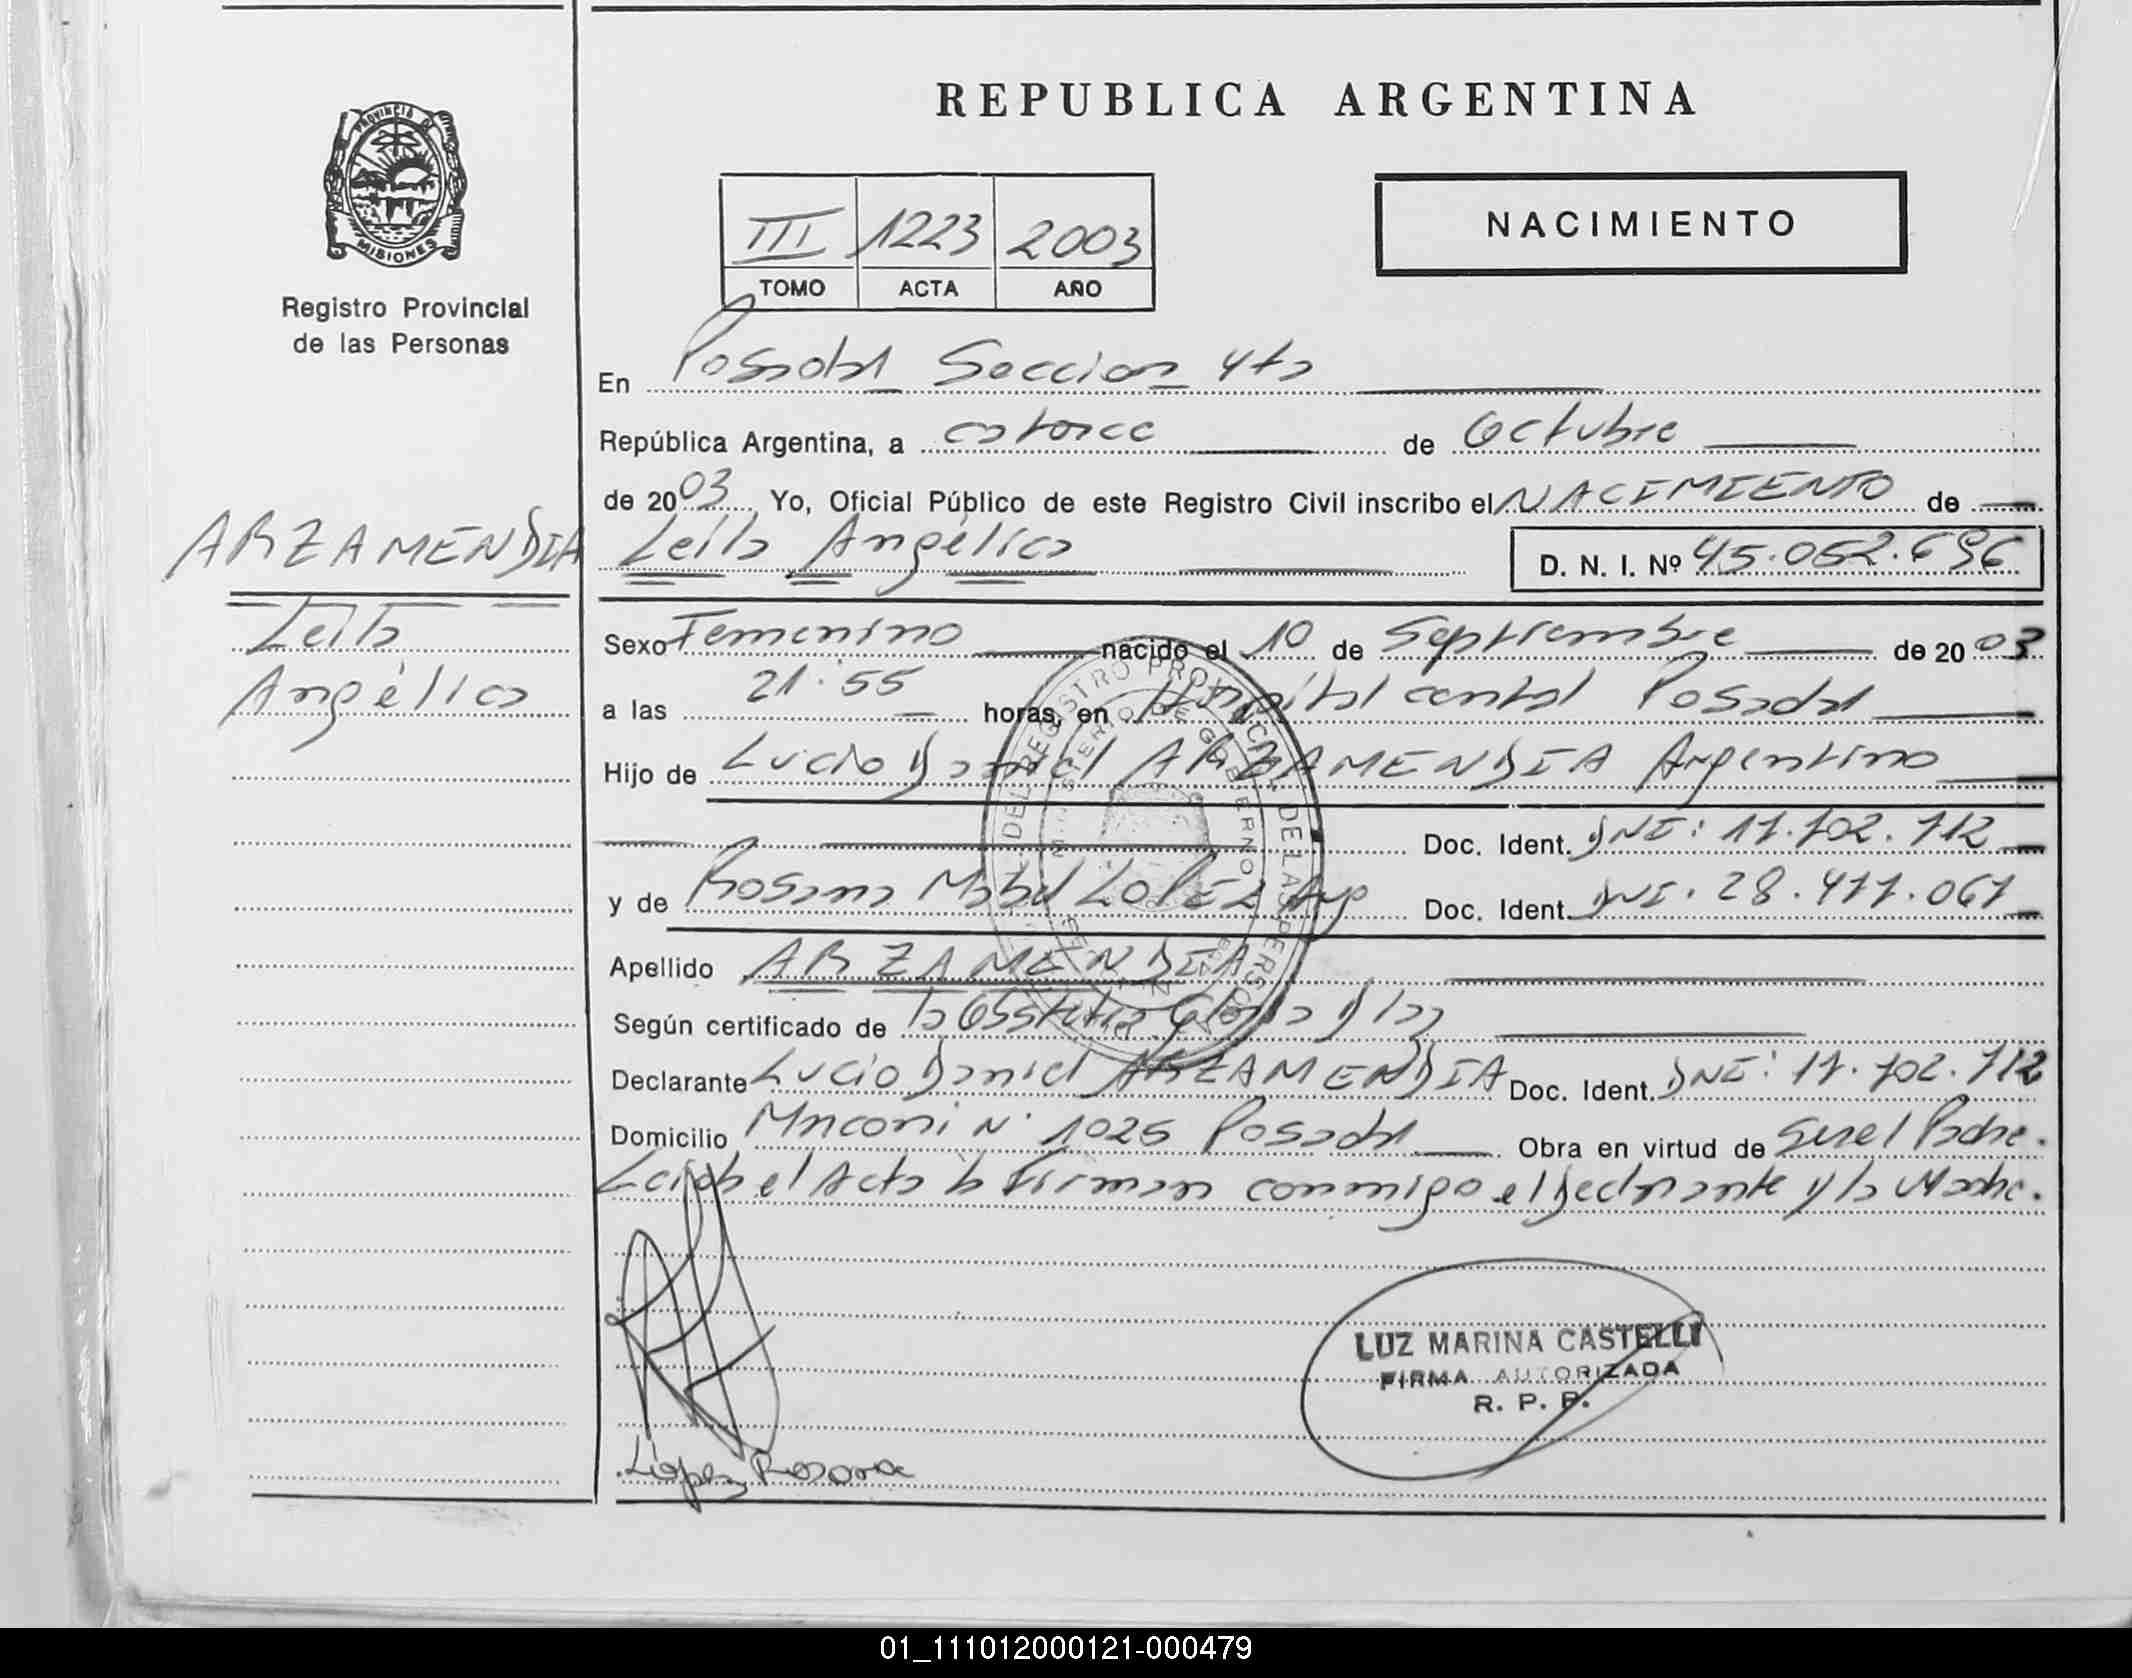 REPUBLICA ARGENTINA
PROVINCIA DE MISIONES
Registro Provincial
de las Personas
III 1223 2003
TOMO ACTA AÑO
NACIMIENTO
En Posadas Seccion 4ta
República Argentina, a catorce de Octubre
de 2003 Yo, Oficial Público de este Registro Civil inscribo el NACIMIENTO de
ARZAMENDIA
Leila
Angélica
Leila Angélica D. N. I. Nº 45.052.696
Sexo Femenino nacido el 10 de Septiembre de 2003
a las 21:55 horas, en Hospital central Posadas
Hijo de Lucio Daniel ARZAMENDIA Argentino
Doc. Ident. DNI: 17.702.712
y de Rosana Mabel LOPEZ Arg Doc. Ident. DNI. 28.477.067
Apellido ARZAMENDIA
Según certificado de la Obstetra
Declarante Lucio Daniel ARZAMENDIA Doc. Ident. DNI: 17.702.712
Domicilio N° 1025 Posadas Obra en virtud de Ser el Padre.
Leida el Acta la Firman conmigo el Declarante y la Madre.
LUZ MARINA CASTELLI
FIRMA AUTORIZADA
R. P. P.
López Rosana
01_111012000121-000479